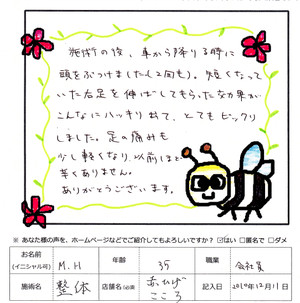 施術の後、車から降りる時に
頭をぶつけました(2回も)。短くなって
いた右足を伸ばしてもらった効果が
こんなにハッキリ出て、とてもビックリ
しました。足の痛みも
少し軽くなり、以前ほど
辛くありません。
ありがとうございます。
※ あなた様の声を、ホームページなどでご紹介してもよろしいですか？ ☑はい □匿名で □ダメ
お名前
(イニシャル可)
M.H
年齢
35
職業
会社員
施術名
整体
店舗名(必須)
あかひげ
こころ
記入日
2019年12月11日